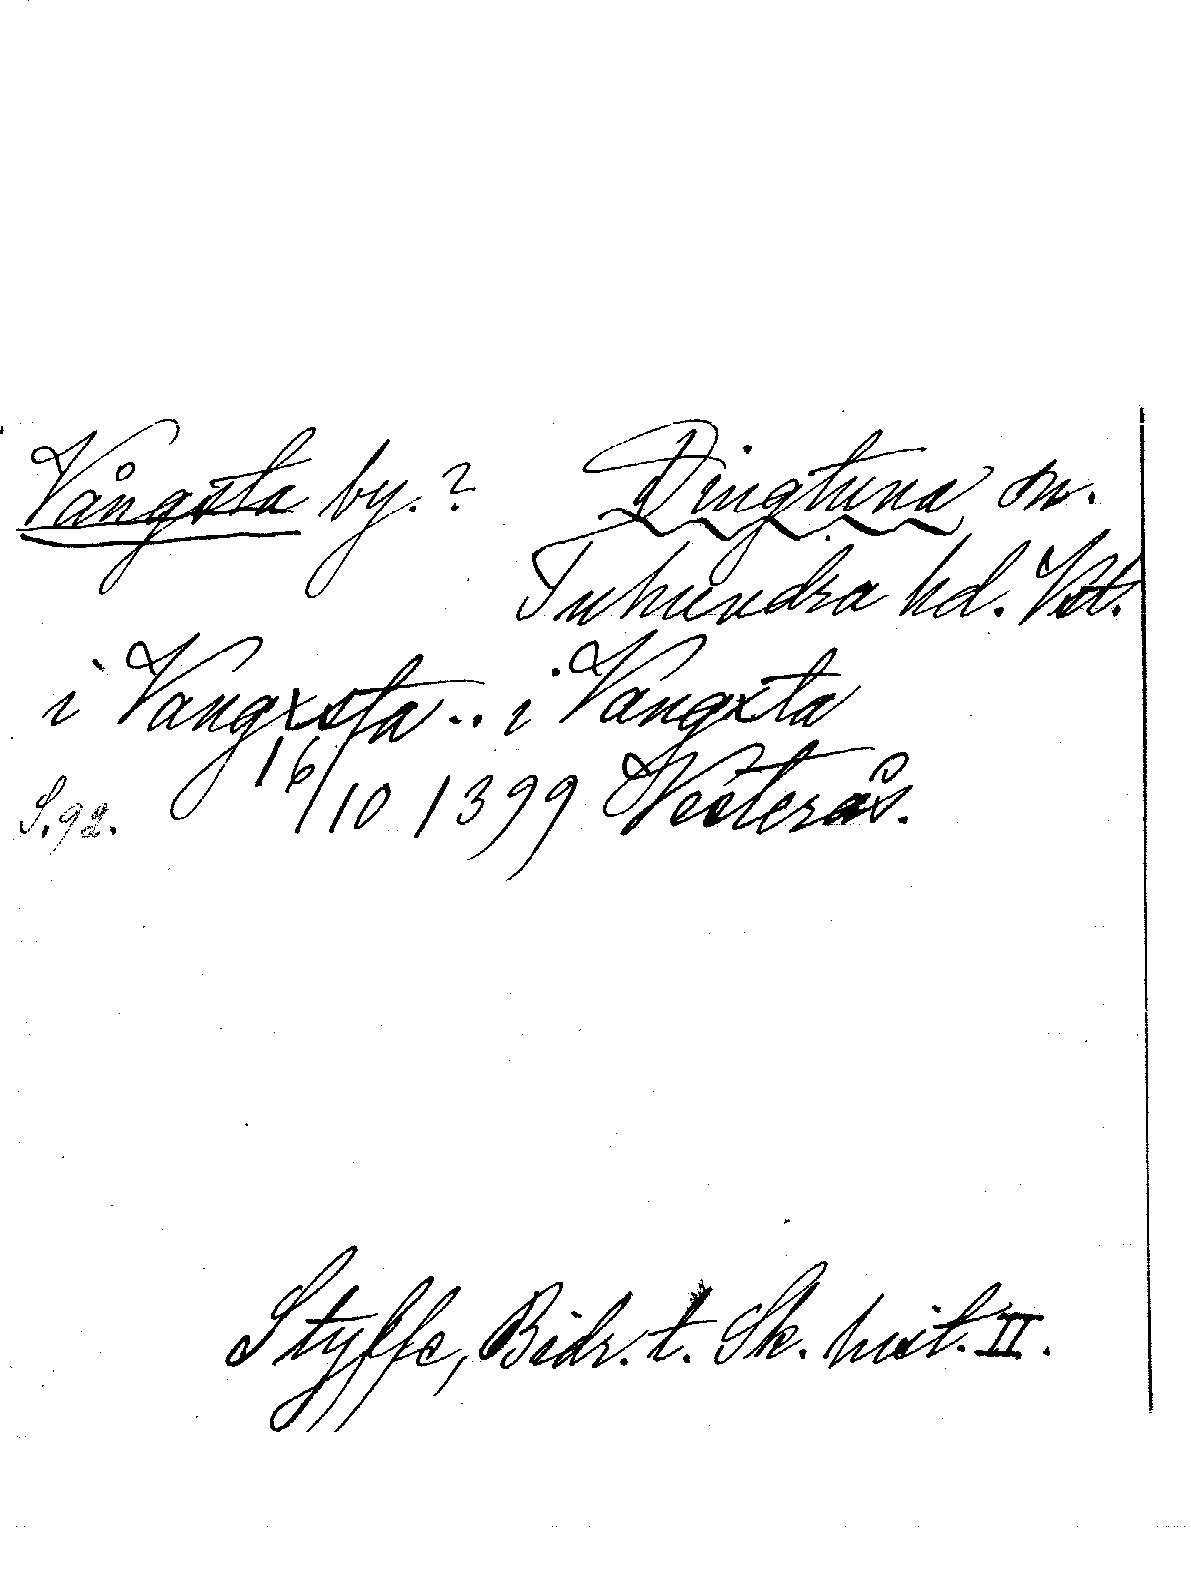 Vångsta by. ? Dingtuna sn.
Tuhundra hd. Vstl.
i Vangxsta .. i Vangxta
16/10 1399 Vesterås.
S. 92.
Styffe, Bidr. t. Sk. hist. II.